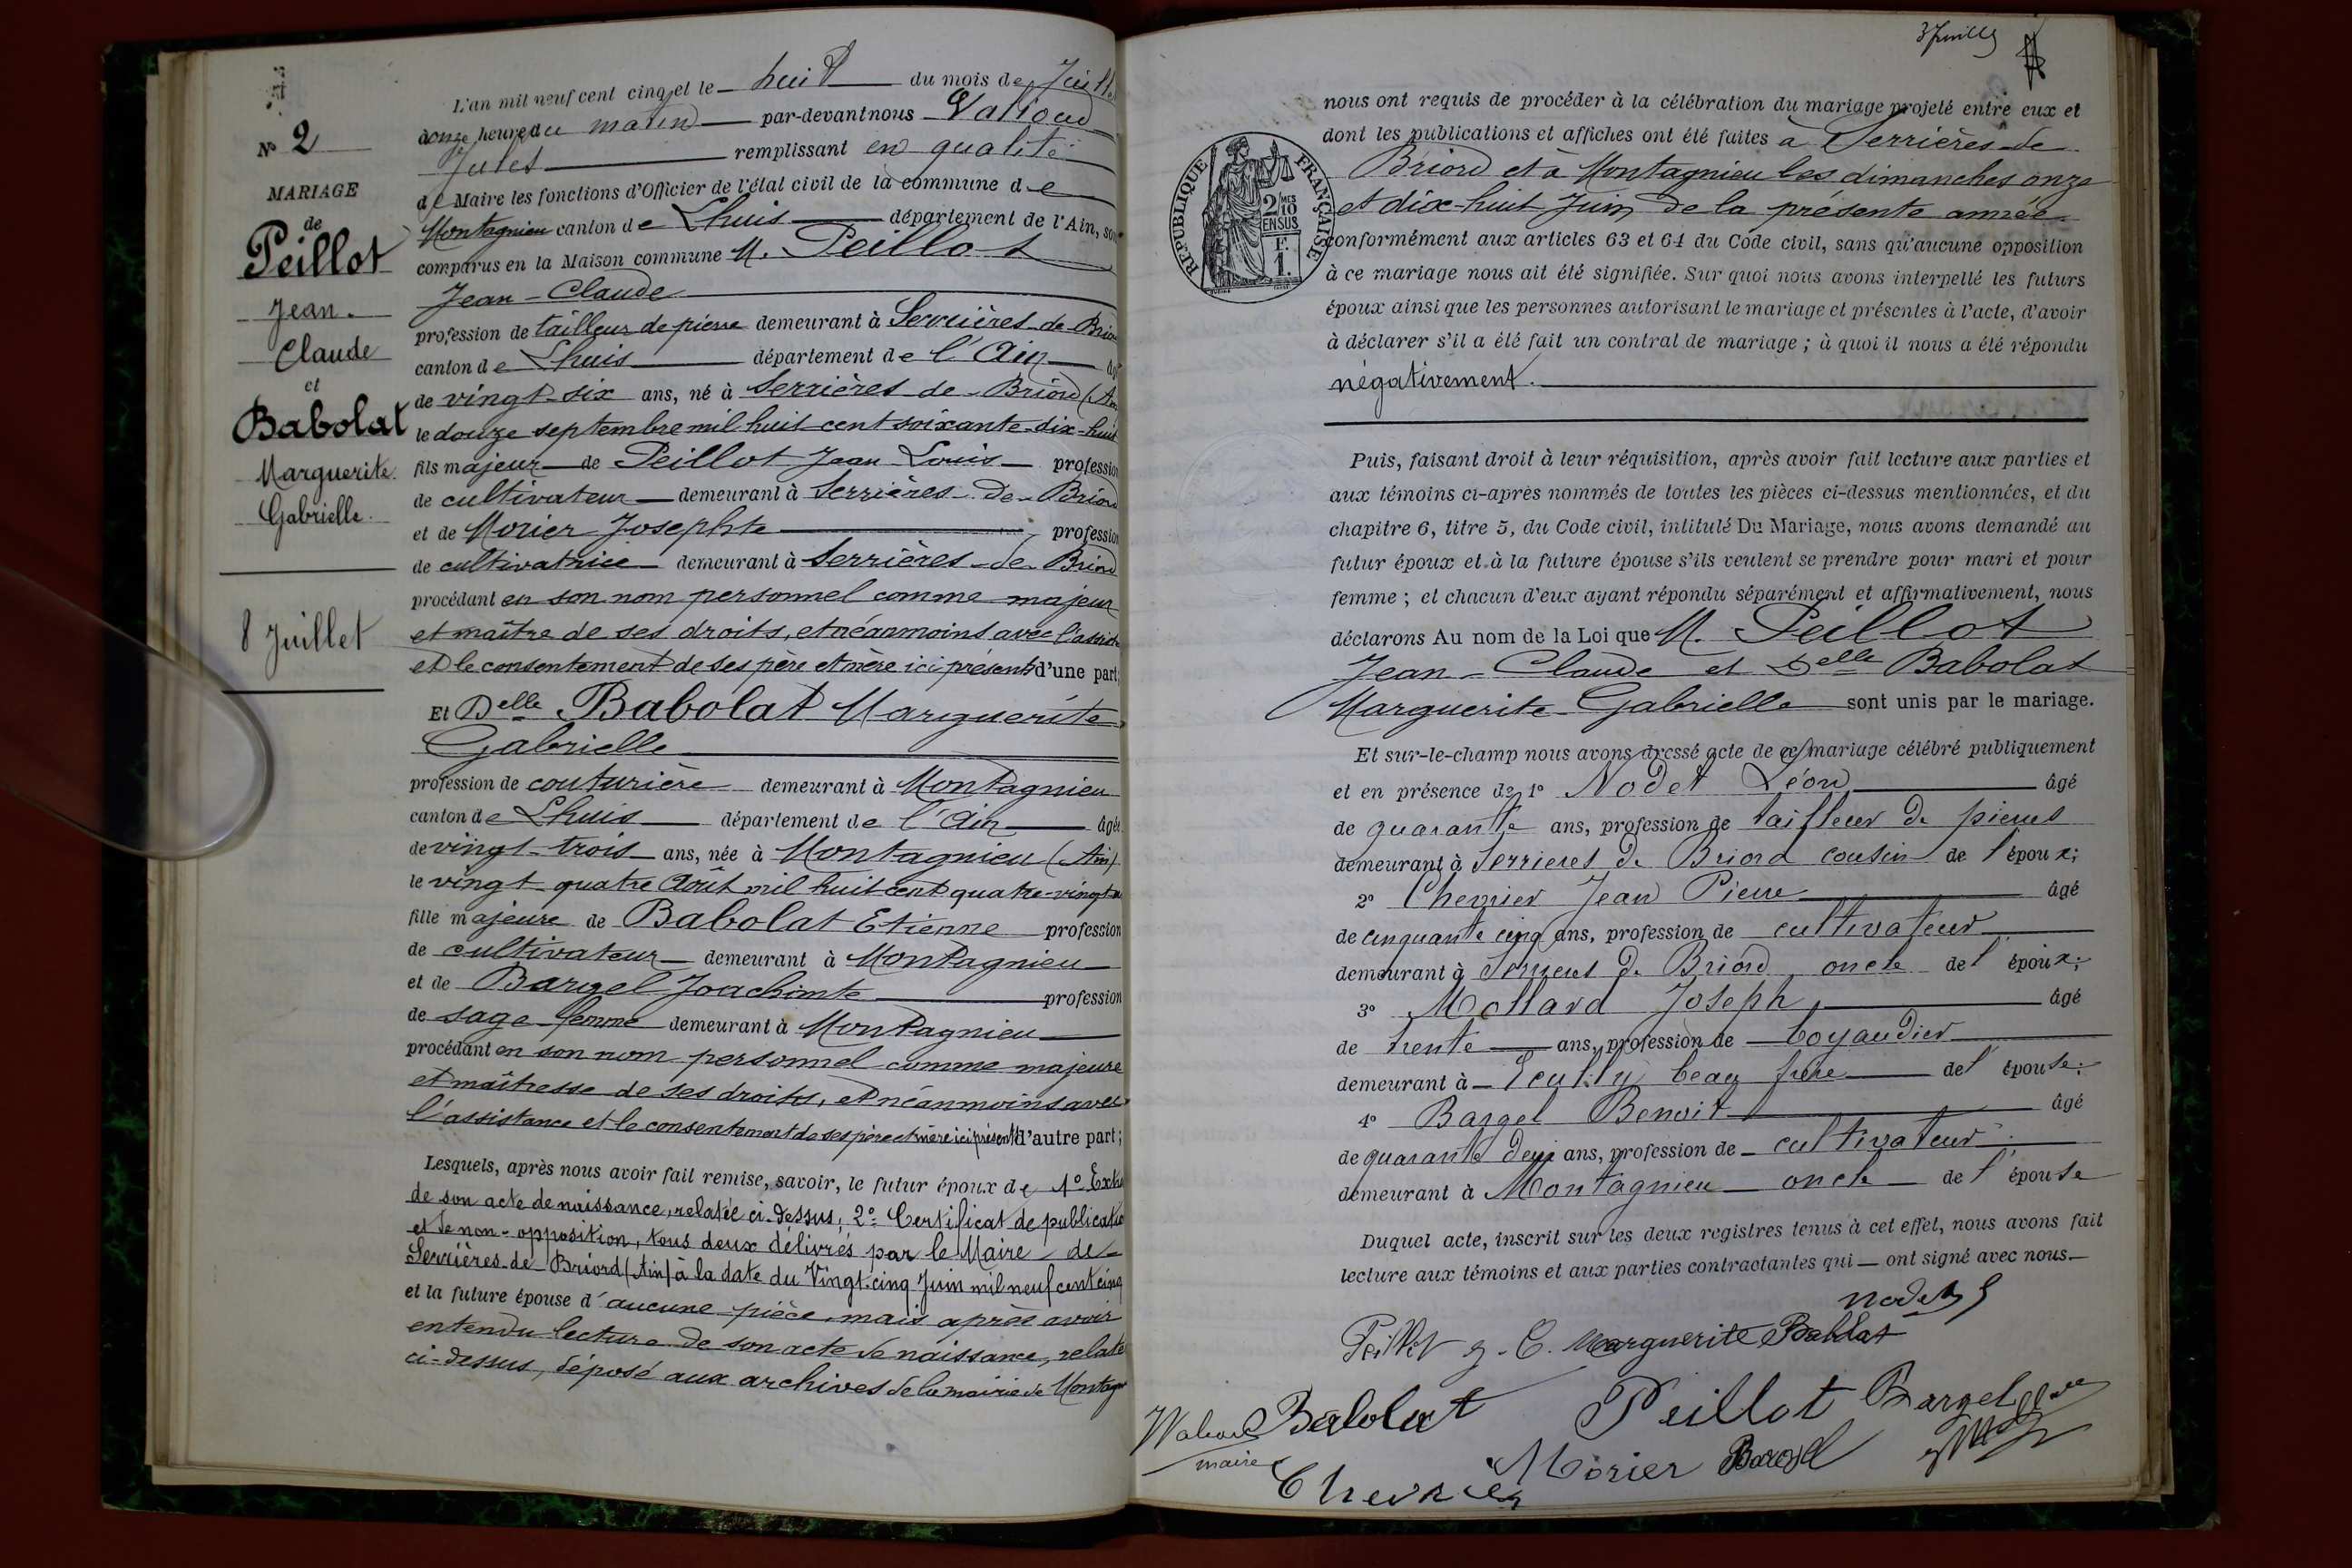 N° 2
MARIAGE
de
Peillot
Jean-
Claude
et
Babolat
Marguerite
Gabrielle
8 Juillet
L'an mil neuf cent cinq et le huit du mois de Juillet
à onze heure du matin par-devant nous
Jules remplissant en qualité
de Maire les fonctions d'Officier de l'état civil de la commune de
Montagnieu canton de Lhuis département de l'Ain, sont
comparus en la Maison commune M. Peillot
Jean-Claude
profession de tailleur de pierre demeurant à Serrières-de-Briord
canton de Lhuis département de l'Ain âgé
de vingt-six ans, né à Serrières-de-Briord (Ain)
le douze septembre mil huit cent soixante-dix-huit
fils majeur de Peillot Jean Louis profession
de cultivateur demeurant à Serrières-de-Briord
et de Morier Josephte profession
de cultivatrice demeurant à Serrières-de-Briord
procédant en son nom personnel comme majeur
et maître de ses droits, et néanmoins avec l'assist
et le consentement de ses père et mère ici présents d'une part;
Et Delle Babolat Marguerite
Gabrielle
profession de couturière demeurant à Montagnieu
canton de Lhuis département de l'Ain âgée
de vingt-trois ans, née à Montagnieu (Ain)
le vingt-quatre Août mil huit cent quatre-vingt-un
fille majeure de Babolat Etienne profession
de cultivateur demeurant à Montagnieu
et de Bargel Joachimte profession
de sage-femme demeurant à Montagnieu
procédant en son nom personnel comme majeure
et maîtresse de ses droits, et néanmoins avec
l'assistance et le consentement de ses père et mère ici présents d'autre part;
Lesquels, après nous avoir fait remise, savoir, le futur époux de 1° Extr
de son acte de naissance, relatée ci-dessus; 2° Certificat de publication
et de non-opposition, tous deux délivrés par le Maire de
Serrières-de-Briord (Ain) à la date du Vingt-cinq Juin mil neuf cent cinq
et la future épouse d'aucune pièce, mais après avoir
entendu lecture de son acte de naissance, relaté
ci-dessus, déposé aux archives de la mairie de Montag
nous ont requis de procéder à la célébration du mariage projeté entre eux et
dont les publications et affiches ont été faites à Serrières-de
Briord et à Montagnieu les dimanches onze
et dix-huit Juin de la présente année
conformément aux articles 63 et 64 du Code civil, sans qu'aucune opposition
à ce mariage nous ait été signifiée. Sur quoi nous avons interpellé les futurs
époux ainsi que les personnes autorisant le mariage et présentes à l'acte, d'avoir
à déclarer s'il a été fait un contrat de mariage; à quoi il nous a été répondu
négativement.
RÉPUBLIQUE FRANÇAISE
2/10 MES
EN SUS
F.
1.
Puis, faisant droit à leur réquisition, après avoir fait lecture aux parties et
aux témoins ci-après nommés de toutes les pièces ci-dessus mentionnées, et du
chapitre 6, titre 5, du Code civil, intitulé Du Mariage, nous avons demandé au
futur époux et à la future épouse s'ils veulent se prendre pour mari et pour
femme; et chacun d'eux ayant répondu séparément et affirmativement, nous
déclarons Au nom de la Loi que M. Peillot
Jean-Claude et Delle Babolat
Marguerite-Gabrielle sont unis par le mariage.
Et sur-le-champ nous avons dressé acte de ce mariage célébré publiquement
et en présence de 1° Nodet Léon âgé
de quarante ans, profession de tailleur de pierres
demeurant à Serrieres de Briord cousin de l'époux;
2° Chevrier Jean Pierre âgé
de cinquante cinq ans, profession de cultivateur
demeurant à Serrieres de Briord oncle de l'époux;
3° Mollard Joseph âgé
de trente ans, profession de boyaudier
demeurant à Ecully beau frère de l'épouse;
4° Bargel Benoit âgé
de quarante deux ans, profession de cultivateur
demeurant à Montagnieu oncle de l'épouse
Duquel acte, inscrit sur les deux registres tenus à cet effet, nous avons fait
lecture aux témoins et aux parties contractantes qui ont signé avec nous
Nodet
Peillot J. C. Marguerite Babolat
Babolat Peillot Bargel
maire
Chevrier Morier Bargel